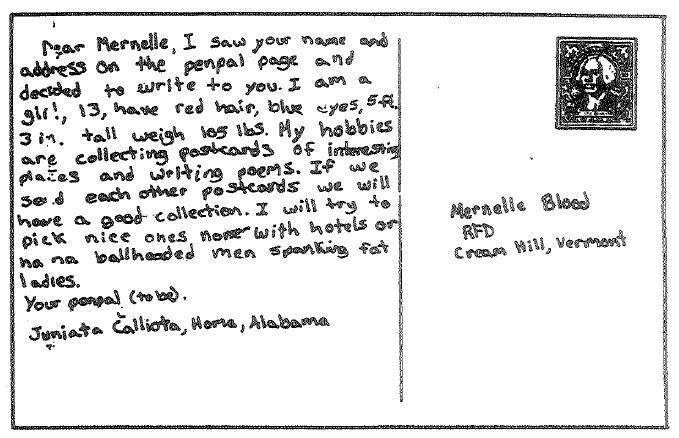 Dear Mernelle, I saw your name and
address on the penpal page and
decided to write to you. I am a
girl, 13, have red hair, blue eyes, 5 ft.
3 in. tall weigh 105 lbs. My hobbies
are collecting postcards of interesting
places and writing poems. If we
send each other postcards we will
have a good collection. I will try to
pick nice ones none with hotels or
ha ha ballheaded men spanking fat
ladies.
Your penpal (to be).
Juniata Calliota, Homa, Alabama
Mernelle Blood
RFD
Cream Hill, Vermont